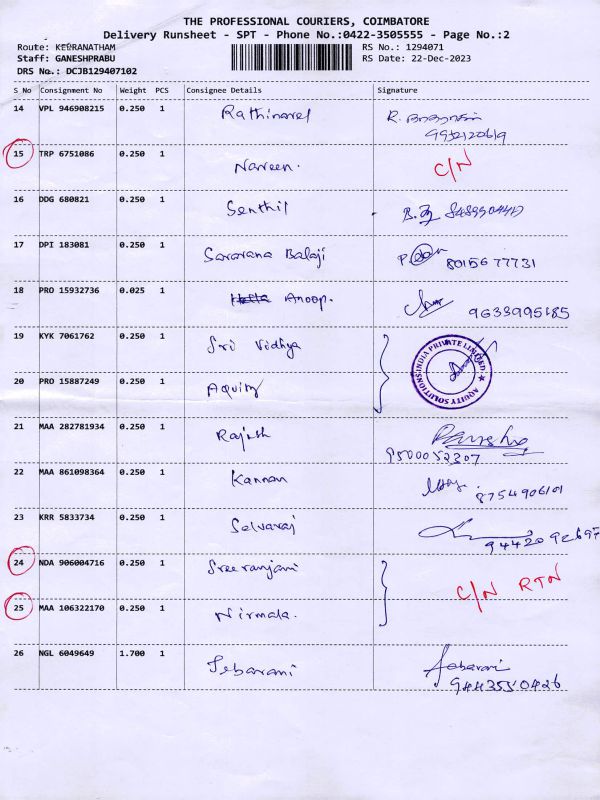 THE PROFESSIONAL COURIERS, COIMBATORE
Delivery Runsheet - SPT - Phone No.:0422-3505555 - Page No.:2
Route: KEERANATHAM
RS No.: 1294071
Staff: GANESHPRABU
RS Date: 22-Dec-2023
DRS No.: DCJB129407102
S No Consignment No Weight PCS Consignee Details Signature
14 VPL 946908215 0.250 1 Rathinavel R.
15 TRP 6751086 0.250 1 Naveen. C/N
16 DDG 680821 0.250 1 Senthil
17 DPI 183081 0.250 1 Saravana Balaji 8015677731
18 PRO 15932736 0.025 1 Anoop. 9633995685
19 KYK 7061762 0.250 1 Sri Vidhya
AQUITY SOLUTIONS INDIA PRIVATE LIMITED
20 PRO 15887249 0.250 1 Aquity
21 MAA 282781934 0.250 1 Rajesh
9500052307
22 MAA 861098364 0.250 1 Kannan 8754906101
23 KRR 5833734 0.250 1 Selvaraj
9442092697
24 NDA 906004716 0.250 1 Sreeranjani
C/N RTN
25 MAA 106322170 0.250 1 Nirmala.
26 NGL 6049649 1.700 1 Jebarani Jebarani
9443550426